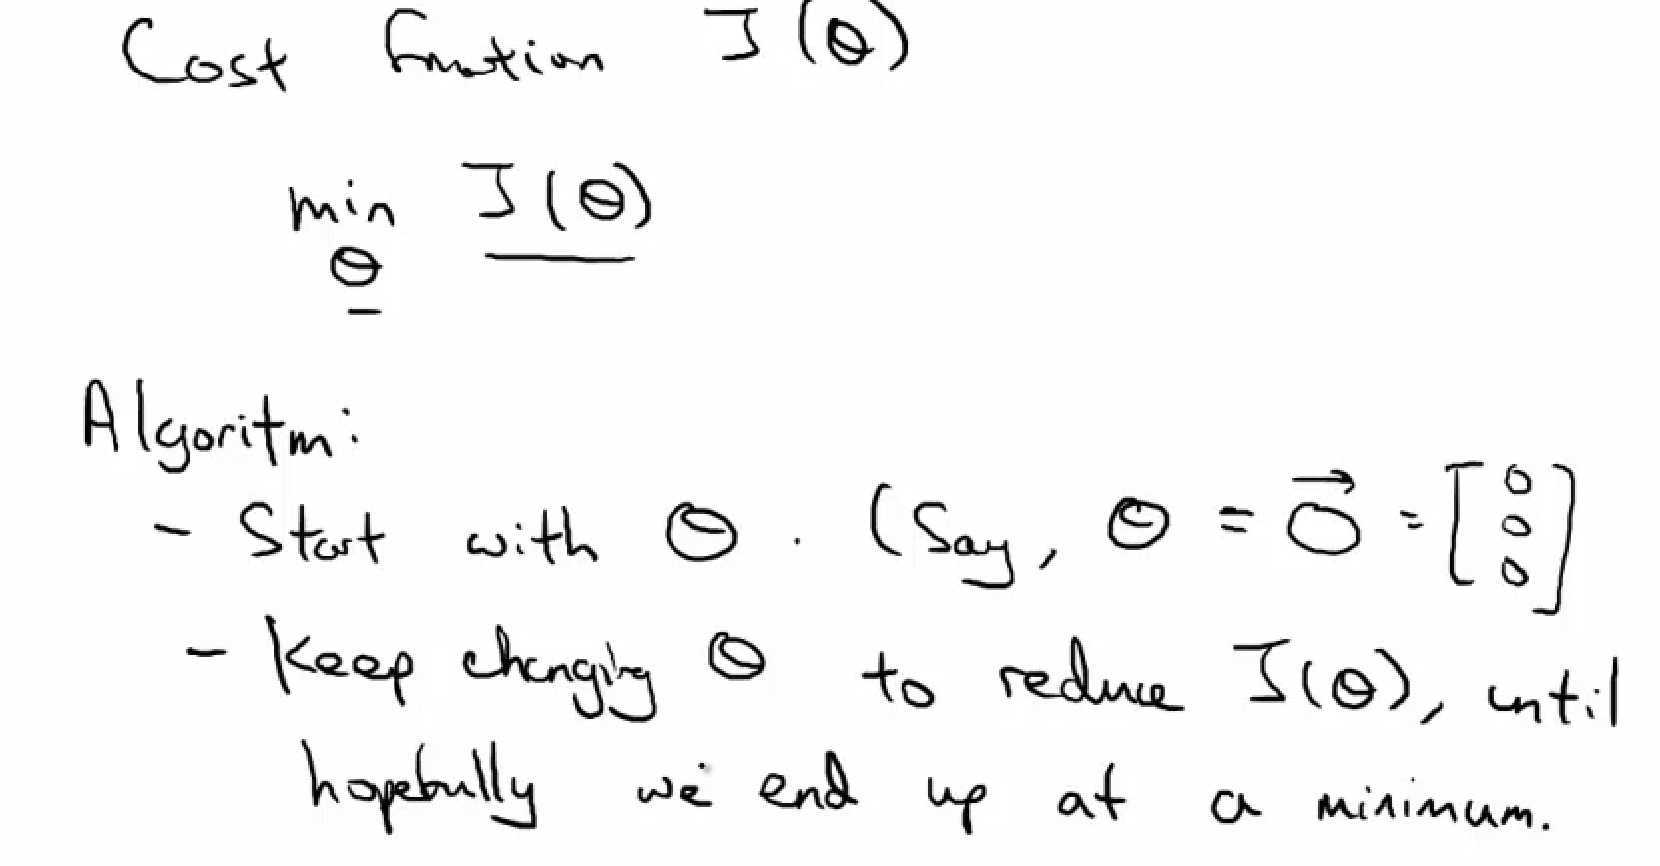 Cost function J(θ)
min J(θ)
θ
Algoritm:
- Start with θ. (Say, θ = 0⃗ = [0 0 0]
- Keep changing θ to reduce J(θ), until
hopefully we end up at a minimum.